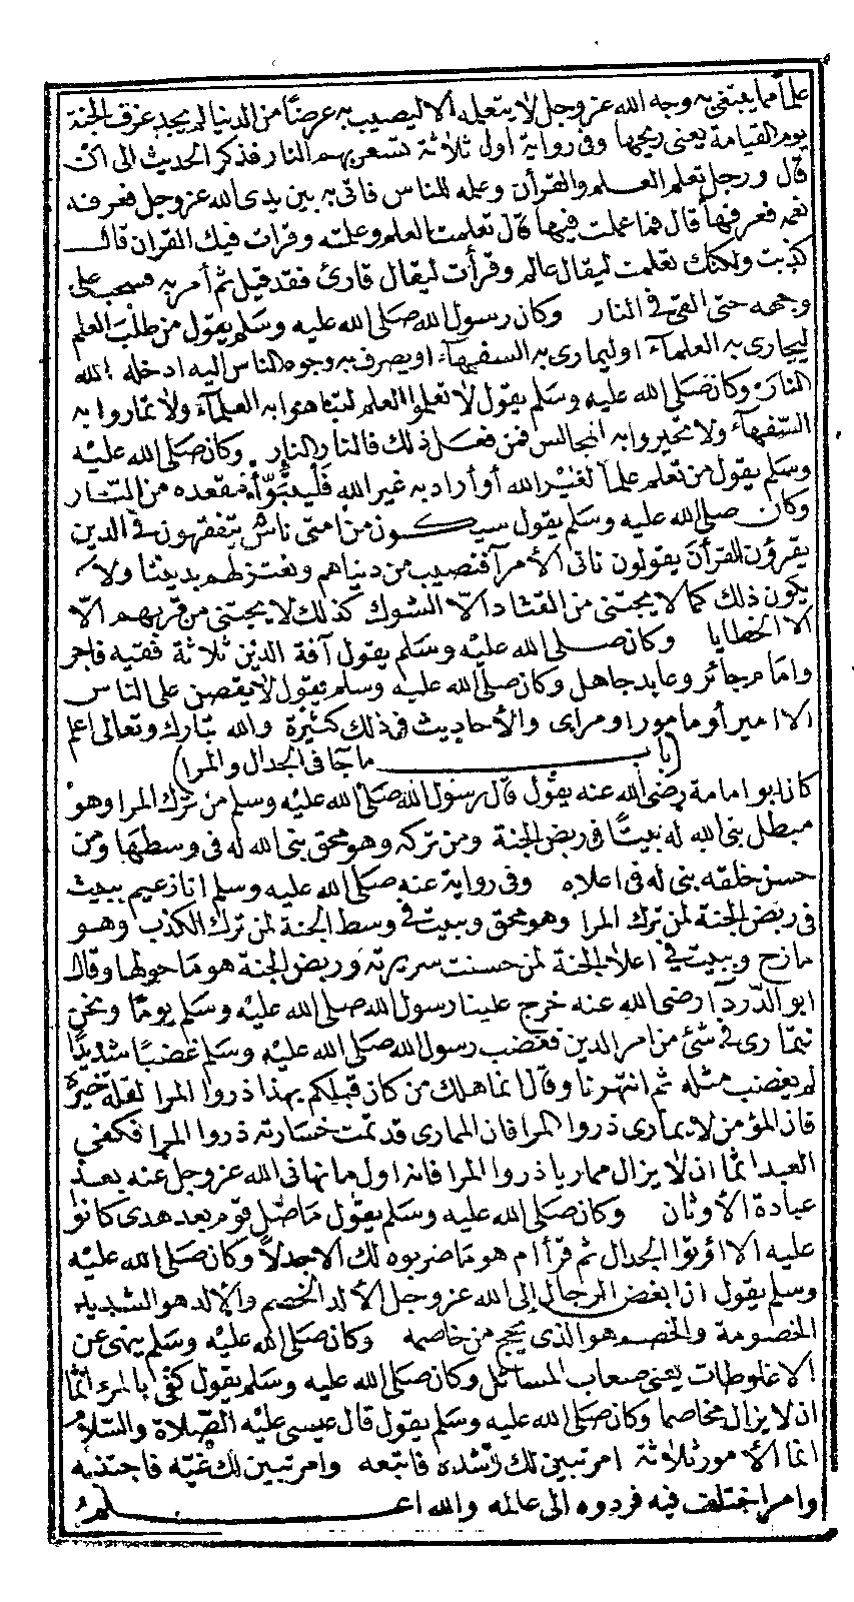 علما مما يبتغى به وجه الله عز وجل لا يتعلمه الا ليصيب به عرضا من الدنيا لم يجد عرف الجنة
يوم القيامة يعنى ريحها وفى رواية اول ثلاثة تسعر بهم النار فذكر الحديث الى ان
قال ورجل تعلم العلم والقرأن وعلمه للناس فاتى به بين يدى الله عز وجل فعرفه
نعمه فعرفها قال فما عملت فيها قال تعلمت العلم وعلمته وقرات فيك القران قال
كذبت ولكنك تعلمت ليقال عالم وقرأت ليقال قارئ فقد قيل ثم أمر به فسحب على
وجهه حتى القى فى النار وكان رسول الله صلى الله عليه وسلم يقول من طلب العلم
ليجارى به العلمآء او ليمارى به السفهآء او يصرف به وجوه الناس اليه ادخله الله
النار وكان صلى الله عليه وسلم يقول لا تعلموا العلم لتباهوا به العلمآء ولا تماروا به
السفهآء ولا تخيروا به المجالس فمن فعل ذلك فالنار النار وكان صلى الله عليه
وسلم يقول من تعلم علما لغير الله أو أراد به غير الله فليتبوأ مقعده من النار
وكان صلى الله عليه وسلم يقول سيكون من امتى ناس يتفقهون فى الدين
يقرؤن القرأن يقولون ناتى الأمرآ فنصيب من دنياهم ونعتزلهم بديننا ولا
يكون ذلك كما لا يجتنى من القتاد الا الشوك كذلك لا يجتنى من قربهم الا
الا الخطايا وكان صلى الله عليه وسلم يقول آفة الدين ثلاثة فقيه فاجر
وامام جائر وعابد جاهل وكان صلى الله عليه وسلم يقول لا يقصن على الناس
الا امير أو مامور او مراى والأحاديث فى ذلك كثيرة والله تبارك وتعالى اعلم
(باب ما جآ فى الجدال والمرا)
كان ابو امامة رضى الله عنه يقول قال رسول الله صلى الله عليه وسلم من ترك المرا وهو
مبطل بنى الله له بيتا فى ربض الجنة ومن تركه وهو محق بنى الله له فى وسطها ومن
حسن خلقه بنى له فى اعلاه وفى رواية عنه صلى الله عليه وسلم انا زعيم ببيت
فى ربض الجنة لمن ترك المرا وهو محق وببيت فى وسط الجنة لمن ترك الكذب وهو
مازح وببيت فى اعلا الجنة لمن حسنت سريرته وربض الجنة هو ما حولها وقال
ابو الدردآ رضى الله عنه خرج علينا رسول الله صلى الله عليه وسلم يوما ونحن
نتمارى فى شئ من امر الدين فغضب رسول الله صلى الله عليه وسلم غضبا شديدا
لم يغضب مثله ثم انتهرنا وقال انما هلك من كان قبلكم بهذا ذروا المرا لقلة خيره
فان المؤمن لا يمارى ذروا المرا فان الممارى قد تمت خسارته ذروا المرا فكفى
العبد اثما ان لا يزال ممارياً ذروا المرا فانه اول ما نهانى الله عز وجل عنه بعد
عبادة الأوثان وكان صلى الله عليه وسلم يقول ما ضل قوم بعد هدى كانوا
عليه الا اوتوا الجدال ثم قرأ ام هو ما ضربوه لك الا جدلا وكان صلى الله عليه
وسلم يقول ان ابغض الرجال الى الله عز وجل الألد الخصم والألد هو الشديد
الخصومة والخصم هو الذى يحج من خاصمه وكان صلى الله عليه وسلم ينهى عن
الاغلوطات يعنى صعاب المسائل وكان صلى الله عليه وسلم يقول كفى بالمرء اثما
ان لا يزال مخاصما وكان صلى الله عليه وسلم يقول قال عيسى عليه الصلاة والسلام
انما الأمور ثلاثة امر تبين لك رشده فاتبعه وامر تبين لك غيه فاجتنبه
وامر اختلف فيه فردوه الى عالمه والله اعلم